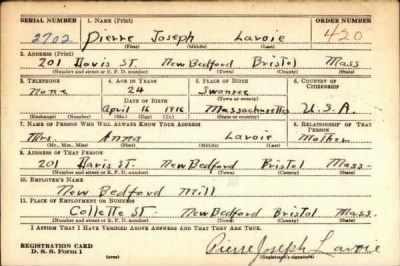 SERIAL NUMBER 1. NAME (Print) ORDER NUMBER
2702 Pierre Joseph Lavoie 420
(First) (Middle) (Last)
2. ADDRESS (Print)
201 Davis ST. New Bedford Bristol Mass
(Number and street or R. F. D. number) (Town) (County) (State)
3. TELEPHONE 4. AGE IN YEARS 5. PLACE OF BIRTH 6. COUNTRY OF CITIZENSHIP
None 24 Swansea
DATE OF BIRTH (Town or county)
April 16 1916 Massachusetts U.S.A.
(Exchange) (Number) (Mo.) (Day) (Yr.) (State or country)
7. NAME OF PERSON WHO WILL ALWAYS KNOW YOUR ADDRESS 8. RELATIONSHIP OF THAT PERSON
Mrs. Anna Lavoie Mother
(Mr., Mrs., Miss) (First) (Middle) (Last)
9. ADDRESS OF THAT PERSON
201 Davis ST. New Bedford Bristol Mass-
(Number and street or R. F. D. number) (Town) (County) (State)
10. EMPLOYER'S NAME
New Bedford Mill
11. PLACE OF EMPLOYMENT OR BUSINESS
Collette ST- New Bedford Bristol Mass.
(Number and street or R. F. D. number) (Town) (County) (State)
I AFFIRM THAT I HAVE VERIFIED ABOVE ANSWERS AND THAT THEY ARE TRUE.
REGISTRATION CARD
D. S. S. Form 1
(over)
Pierre Joseph Lavoie
(Registrant's signature)